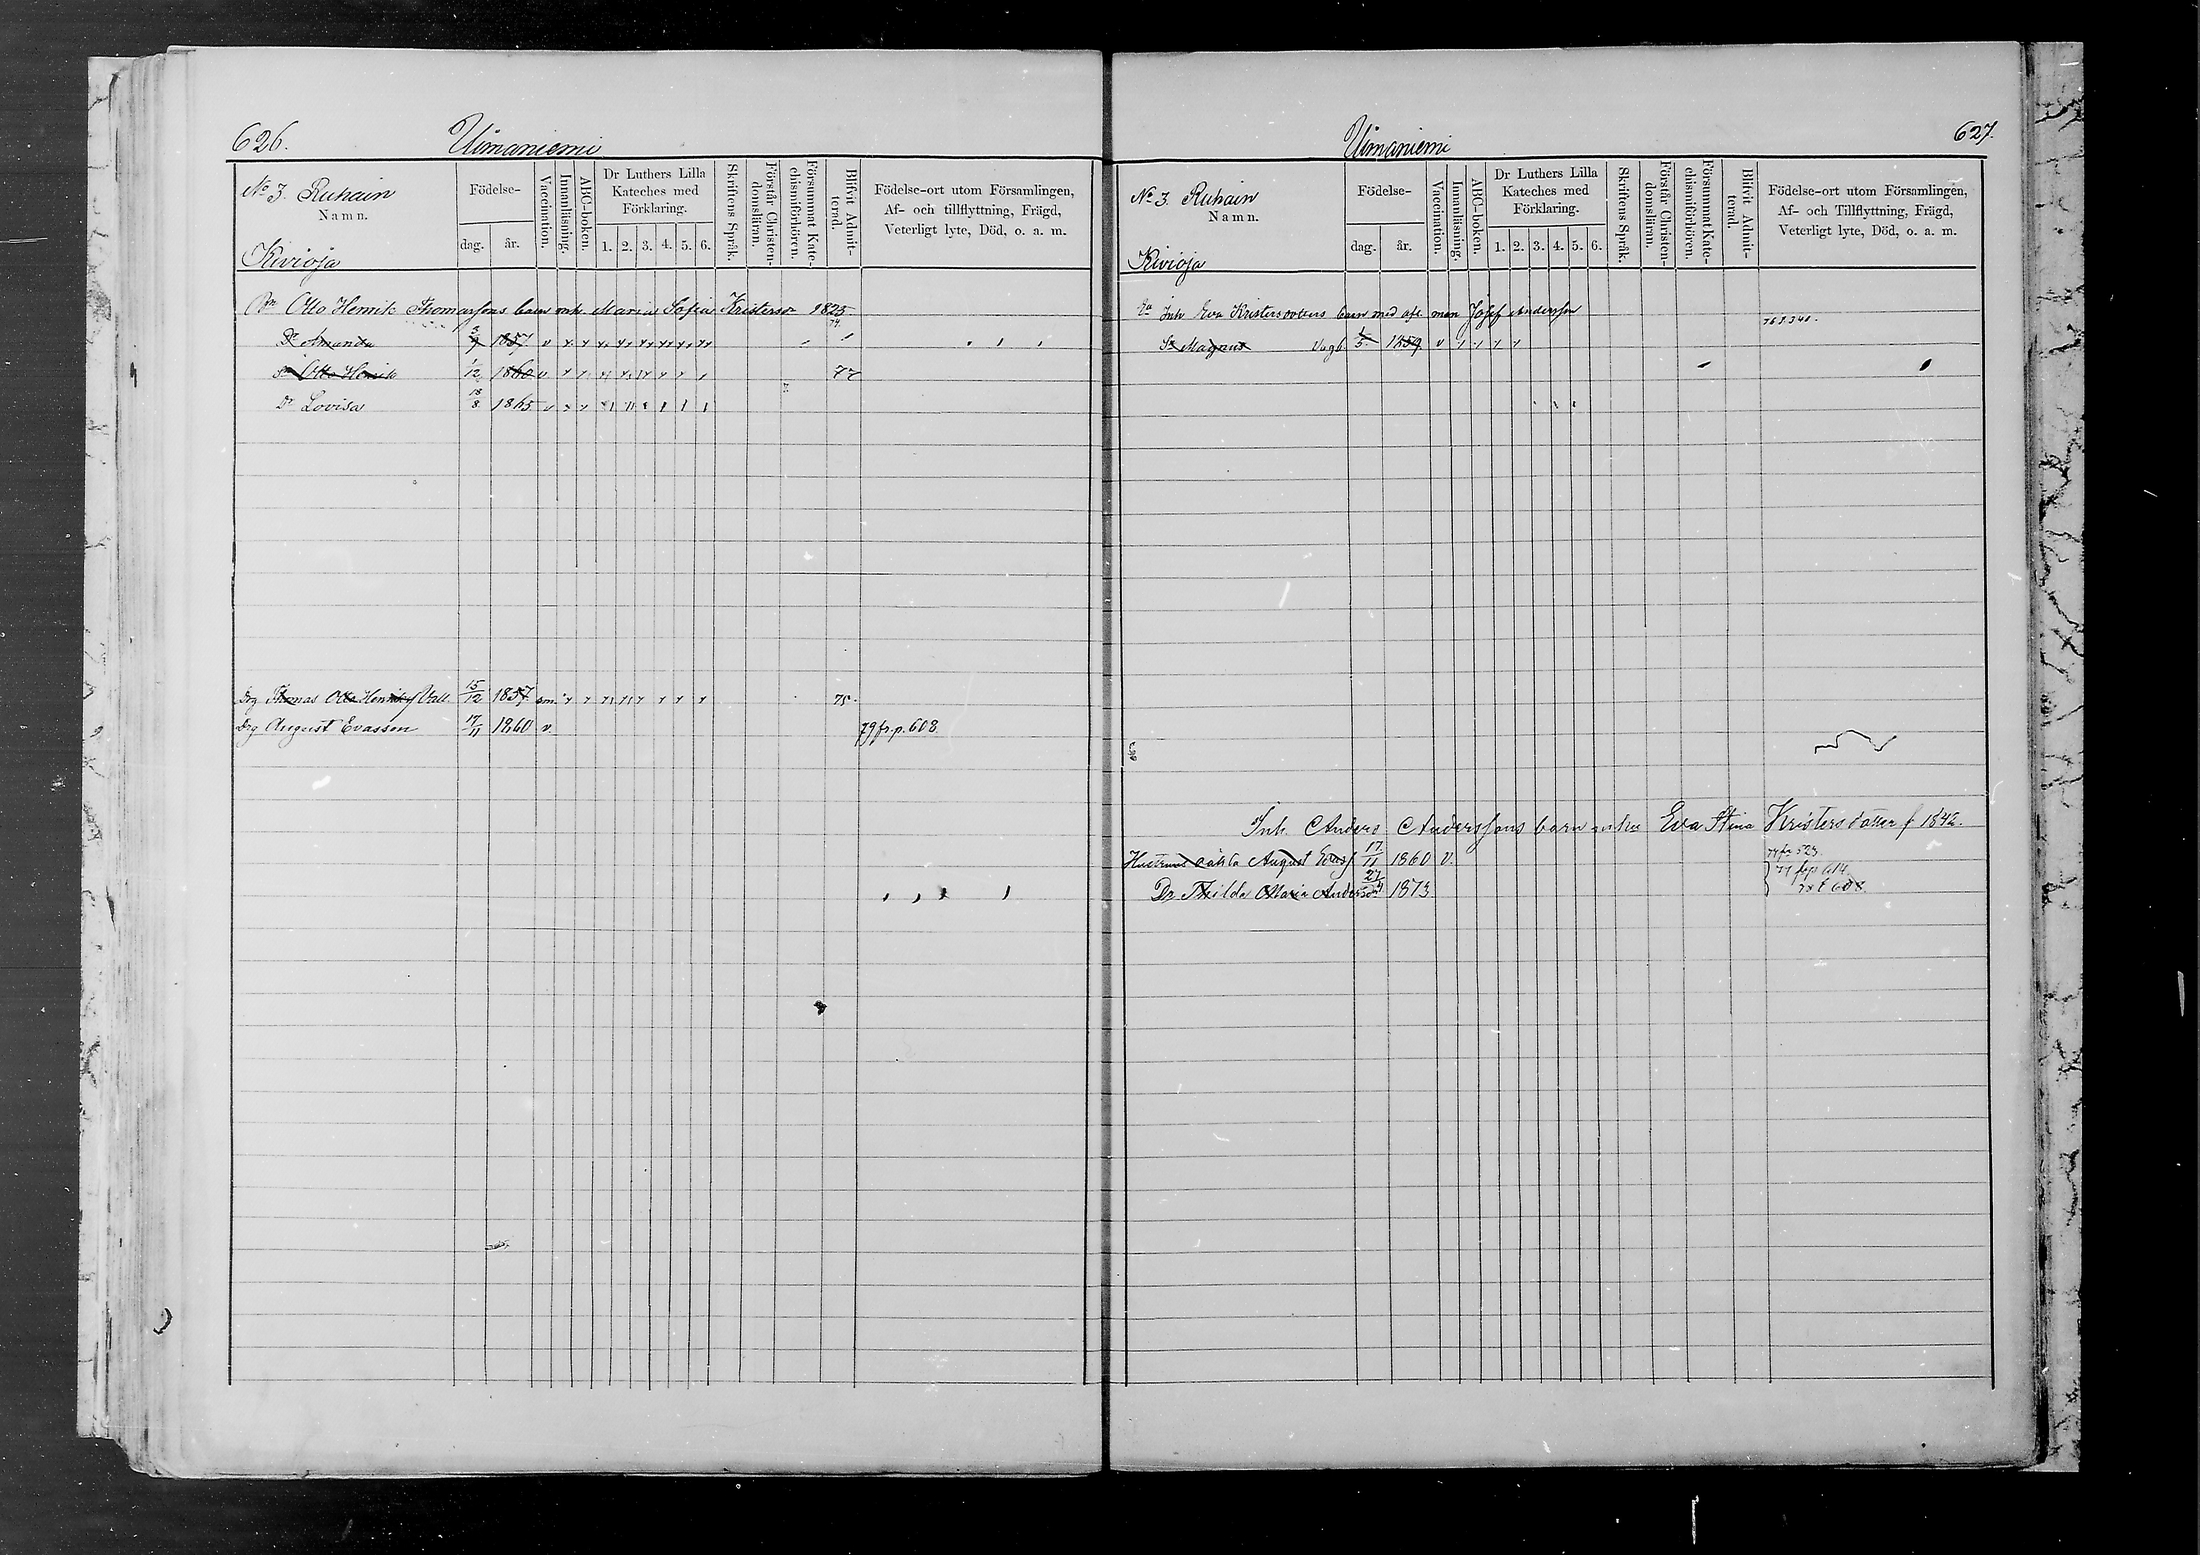 626.
Uimaniemi
No 3. Ruhain
Namn.
Kivioja
Födelse-
dag.
år.
Vaccination.
Innanläsning.
ABC-boken.
Dr Luthers Lilla Kateches med Förklaring.
1. 2. 3. 4. 5. 6.
Skriftens Språk.
Förstår Christendomsläran.
Försummat Katechismiförhören.
Blifvit Admitterad.
Födelse-ort utom Församlingen,
Af- och tillflyttning, Frägd,
Veterligt lyte, Död, o. a. m.
Otto Henrik Thomassons barn mh. Maria Sofia Kristersr 1825
Dr Amanda 3/9 1857 v 74
Sn Otto Henrik 1/12 1860 v 77
Dr Lovisa 18/8 1865 v
Drg Thomas Otto Henriksf Vall. 15/12 1857 sm. 75.
Drg August Evasson 17/11 1860 v. 79 fr. p. 608
627.
Uimaniemi
No 3. Ruhain
Namn.
Kivioja
Födelse-
dag.
år.
Vaccination.
Innanläsning.
ABC-boken.
Dr Luthers Lilla Kateches med Förklaring.
1. 2. 3. 4. 5. 6.
Skriftens Språk.
Förstår Christendomsläran.
Försummat Katechismiförhören.
Blifvit Admitterad.
Födelse-ort utom Församlingen,
Af- och Tillflyttning, Frägd,
Veterligt lyte, Död, o. a. m.
Inh Eva Kristersdotters barn med afl. man Josef Andersson
Sn Magnus 1859 v
Inh. Anders Anderssons barn m hu Eva Stina Kristersdotter f 1842.
Hustruns oäkta August Evasf 17/11 1860 v. 77 fr 523.
Dr Thilda Maria Andersdr 1873. 77 fr p 614
78 t 608